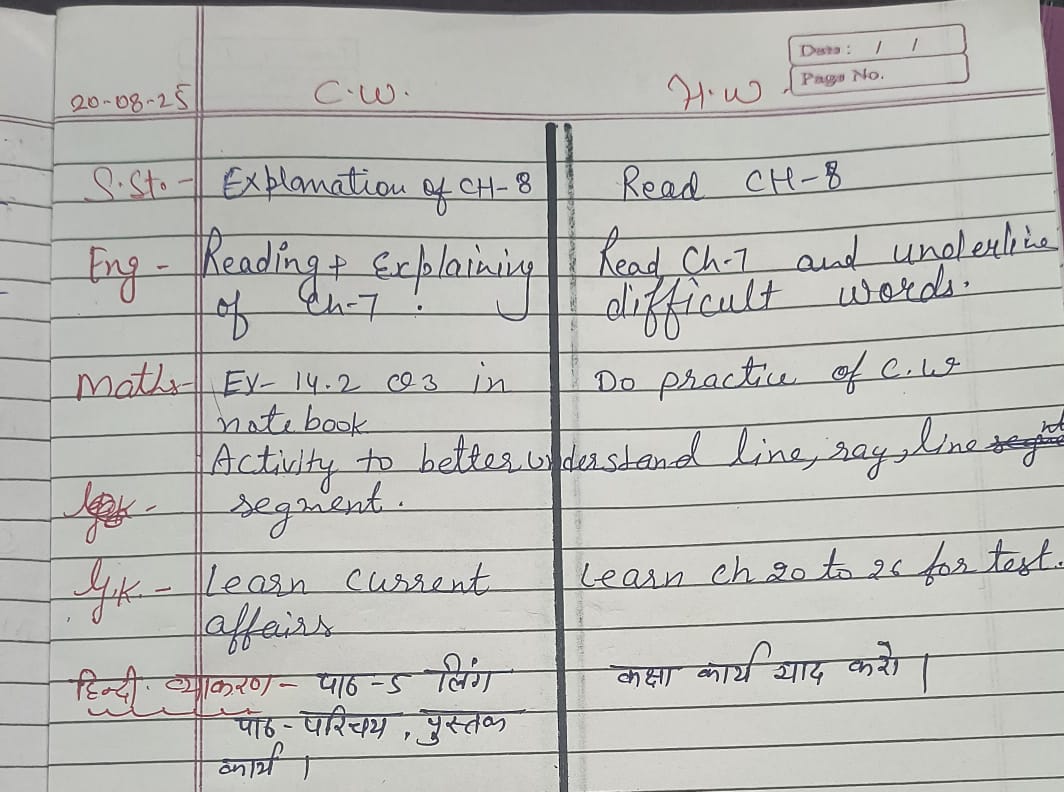 Date : / /
Page No.
20-08-25 C.W. H.W.
S.St. - Explanation of CH-8 Read CH-8
Eng - Reading + Explaining Read Ch-7 and underline
of Ch-7. difficult words.
Maths - Ex- 14.2 Q3 in Do practice of C.W
notebook
Activity to better understand line, ray, line
segment.
G.K. - Learn Current Learn ch 20 to 26 for test.
affairs
हिन्दी व्याकरण - पाठ -5 लिंग कक्षा कार्य याद करो।
पाठ - परिचय, पुस्तक
कार्य।